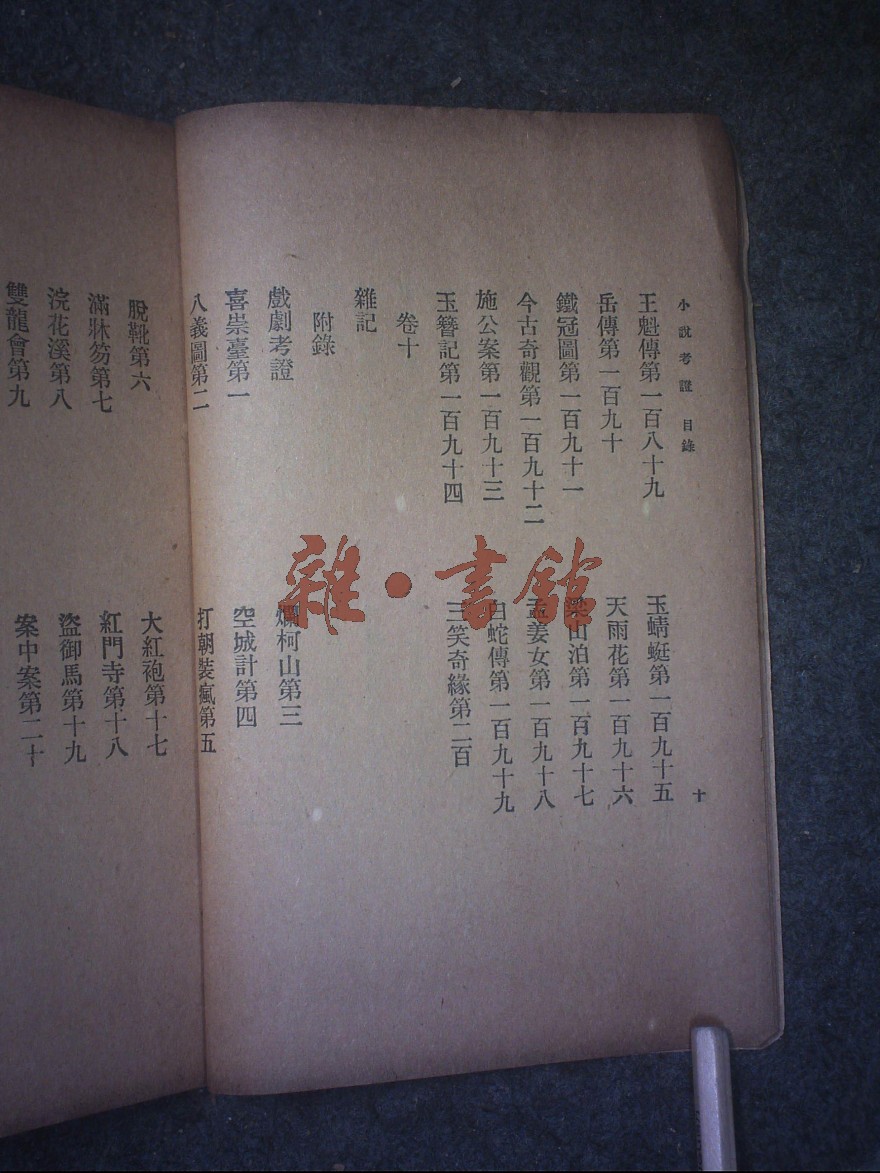 小說考證 目錄
十
王魁傳第一百八十九
岳傳第一百九十
鐵冠圖第一百九十一
今古奇觀第一百九十二
施公案第一百九十三
玉簪記第一百九十四
玉蜻蜓第一百九十五
天雨花第一百九十六
梁山泊第一百九十七
孟姜女第一百九十八
白蛇傳第一百九十九
三笑奇緣第二百
卷十
雜記
附錄
戲劇考證
喜崇臺第一
八義圖第二
爛柯山第三
空城計第四
打朝裝瘋第五
脫靴第六
滿牀笏第七
浣花溪第八
雙龍會第九
大紅袍第十七
紅門寺第十八
盜御馬第十九
案中案第二十
雜·書館